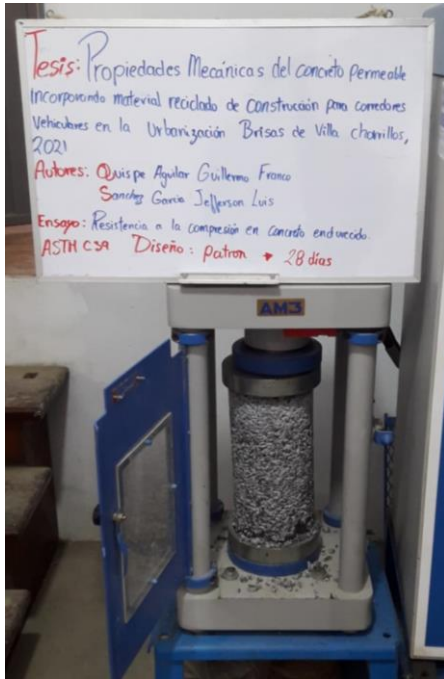 Tesis: Propiedades Mecánicas del concreto permeable
Incorporando material reciclado de construcción para corredores
Vehiculares en la Urbanización Brisas de Villa chorrillos,
2021
Autores: Quispe Aguilar Guillermo Franco
Sanchez Garcia Jefferson Luis
Ensayo: Resistencia a la compresión en concreto endurecido.
ASTM C39 Diseño: patron + 28 días
AM3